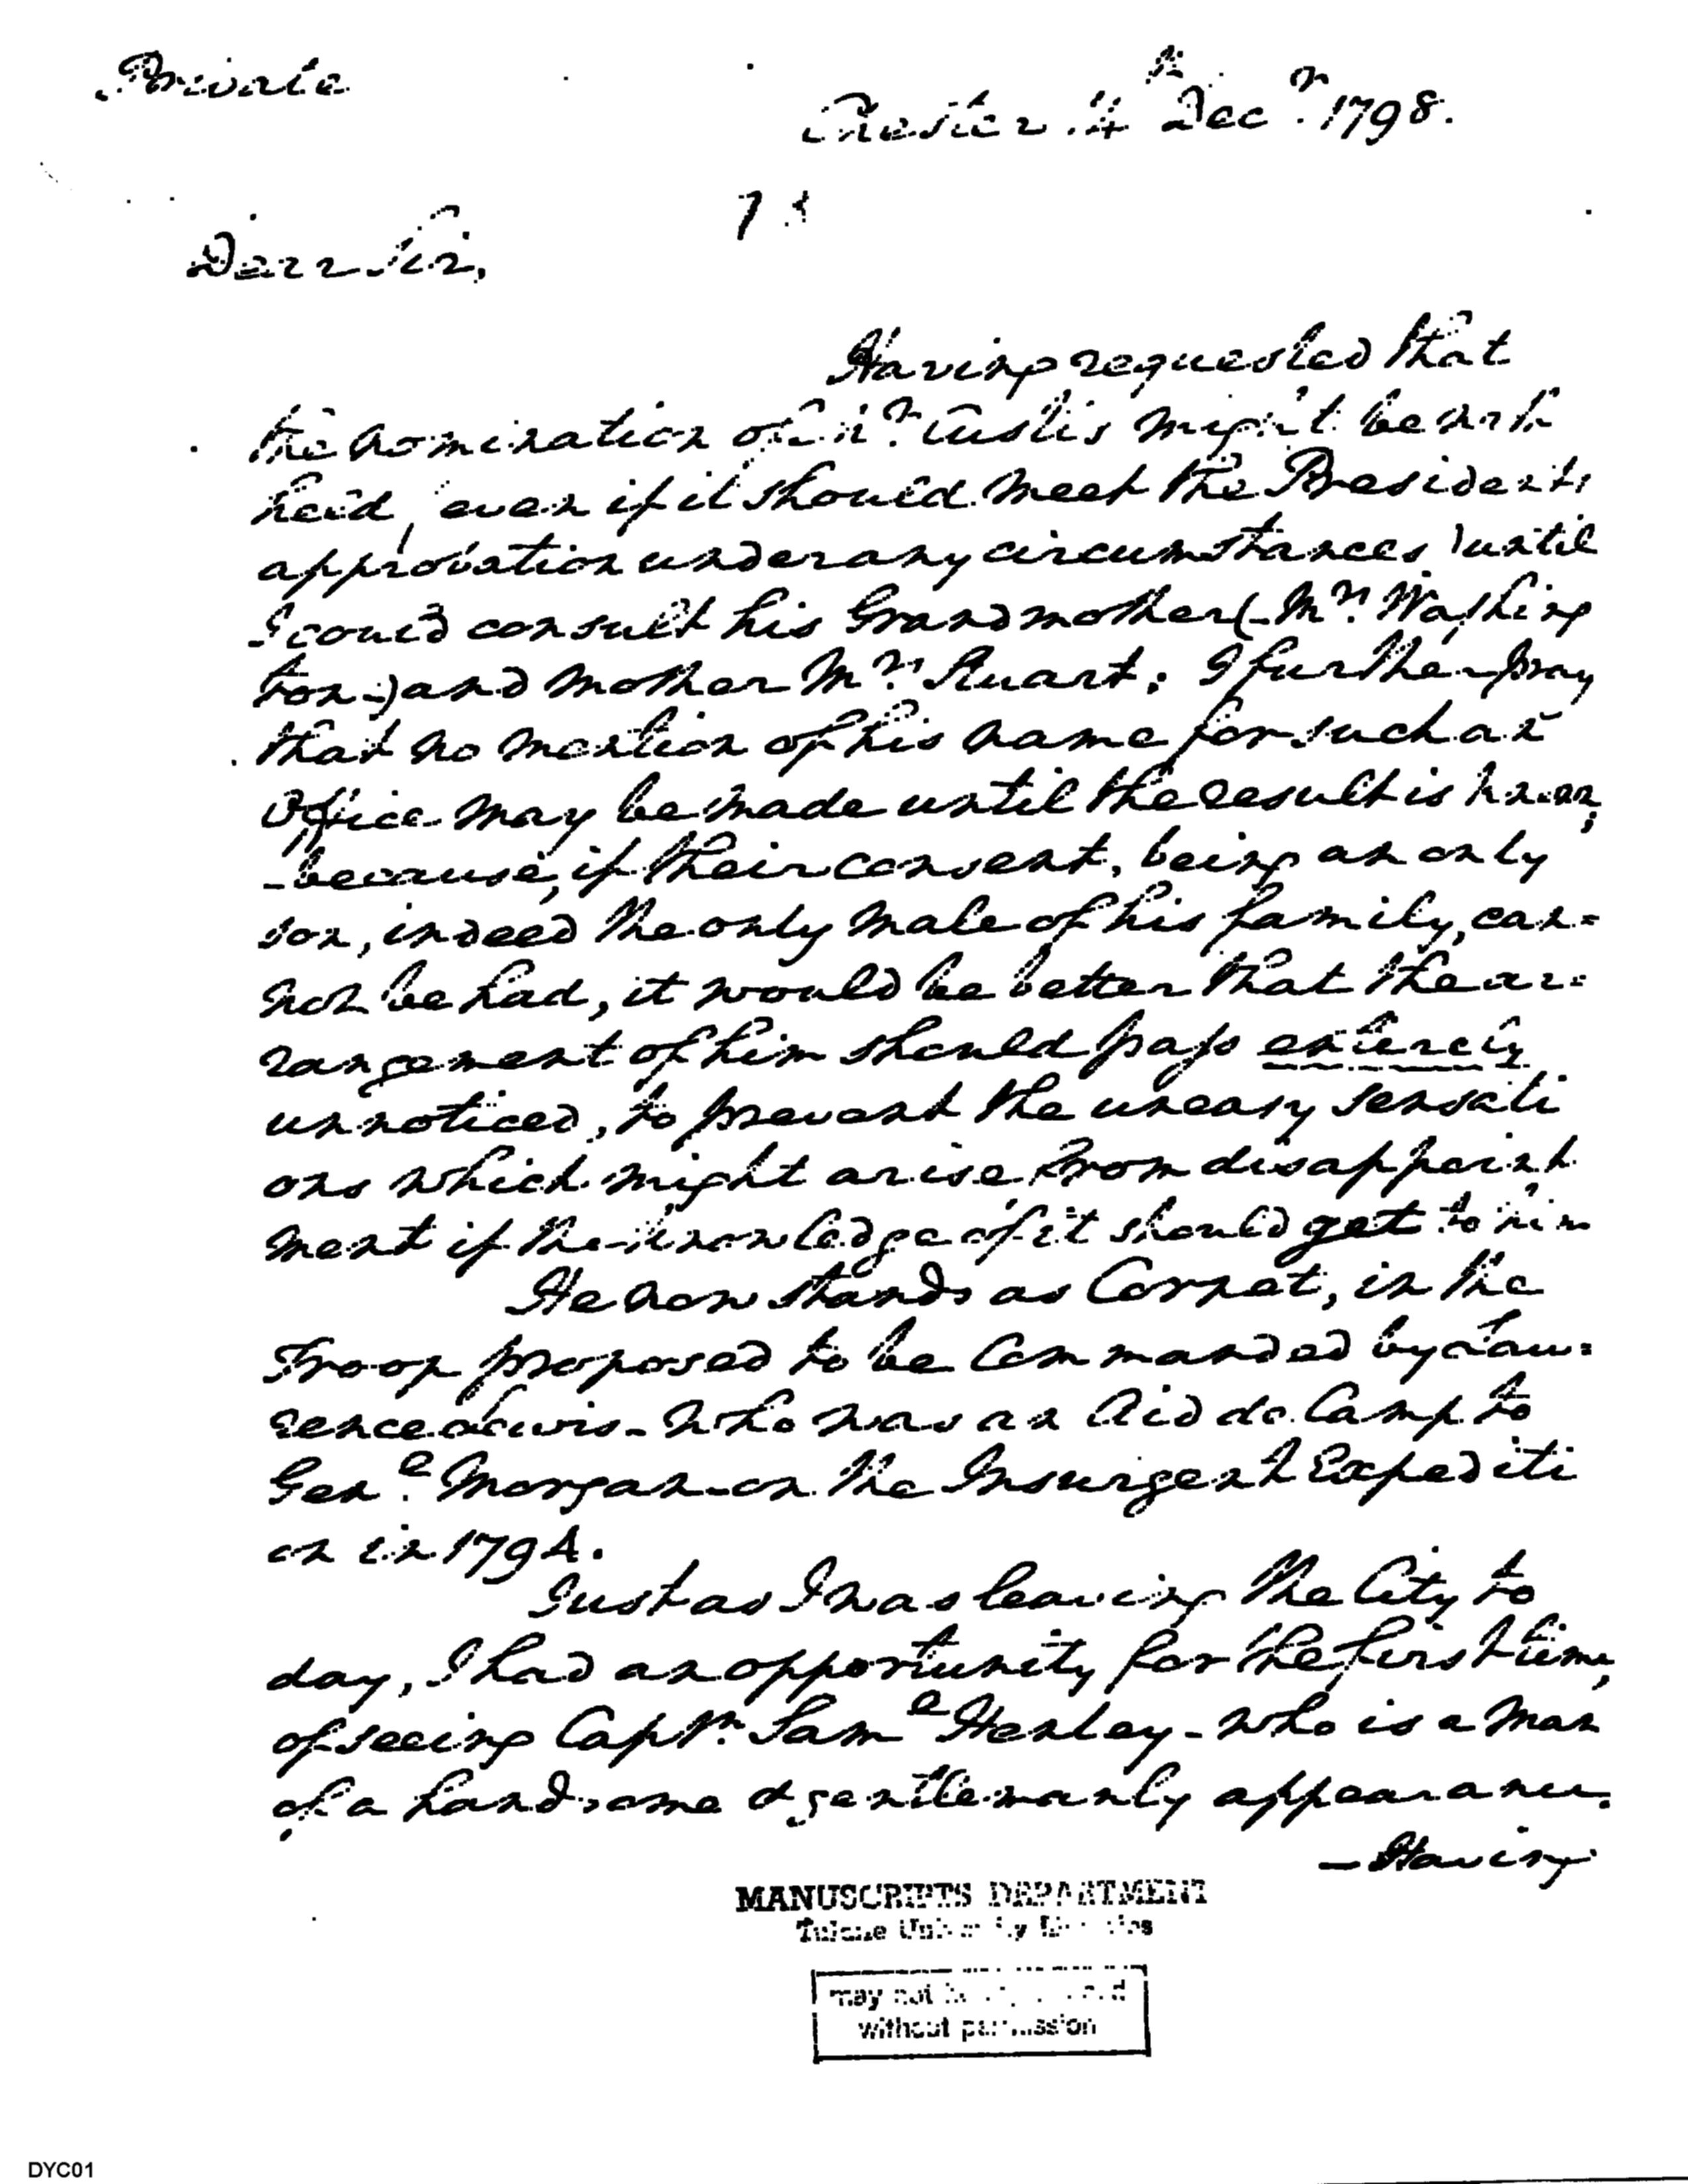 Private
Chester 14th Decr. 1798.
Dear Sir,
Having requested that
the nomination of Mr. Custis might be with
held, even if it should meet the Presidents
approbation under any circumstances, until
I could consult his Grandmother (Mrs. Washing
ton-) and mother Mrs. Stuart; I further pray
that no mention of his name for such an
Office may be made until the result is known,
-because, if their consent, being an only
son, indeed the only male of his family, can=
not be had, it would be better that the ar=
rangement of him should pass entirely
unnoticed, to prevent the uneasy sensati
ons which might arise from disappoint
ment if the knowledge of it should get to him
He now stands as Cornet, in the
Troop proposed to be Commanded by Law=
rence Lewis - who was an Aid de Camp to
Genl. Morgan - on the Insurgent Expediti
on in 1794.
Just as I was leaving the City to
day, I had an opportunity for the first time,
of seeing Captn. Saml Henley - who is a man
of a handsome & gentlemanly appearance.
- Having
MANUSCRIPTS DEPARTMENT
Tulane University Libraries
may not be
without permission
DYC01